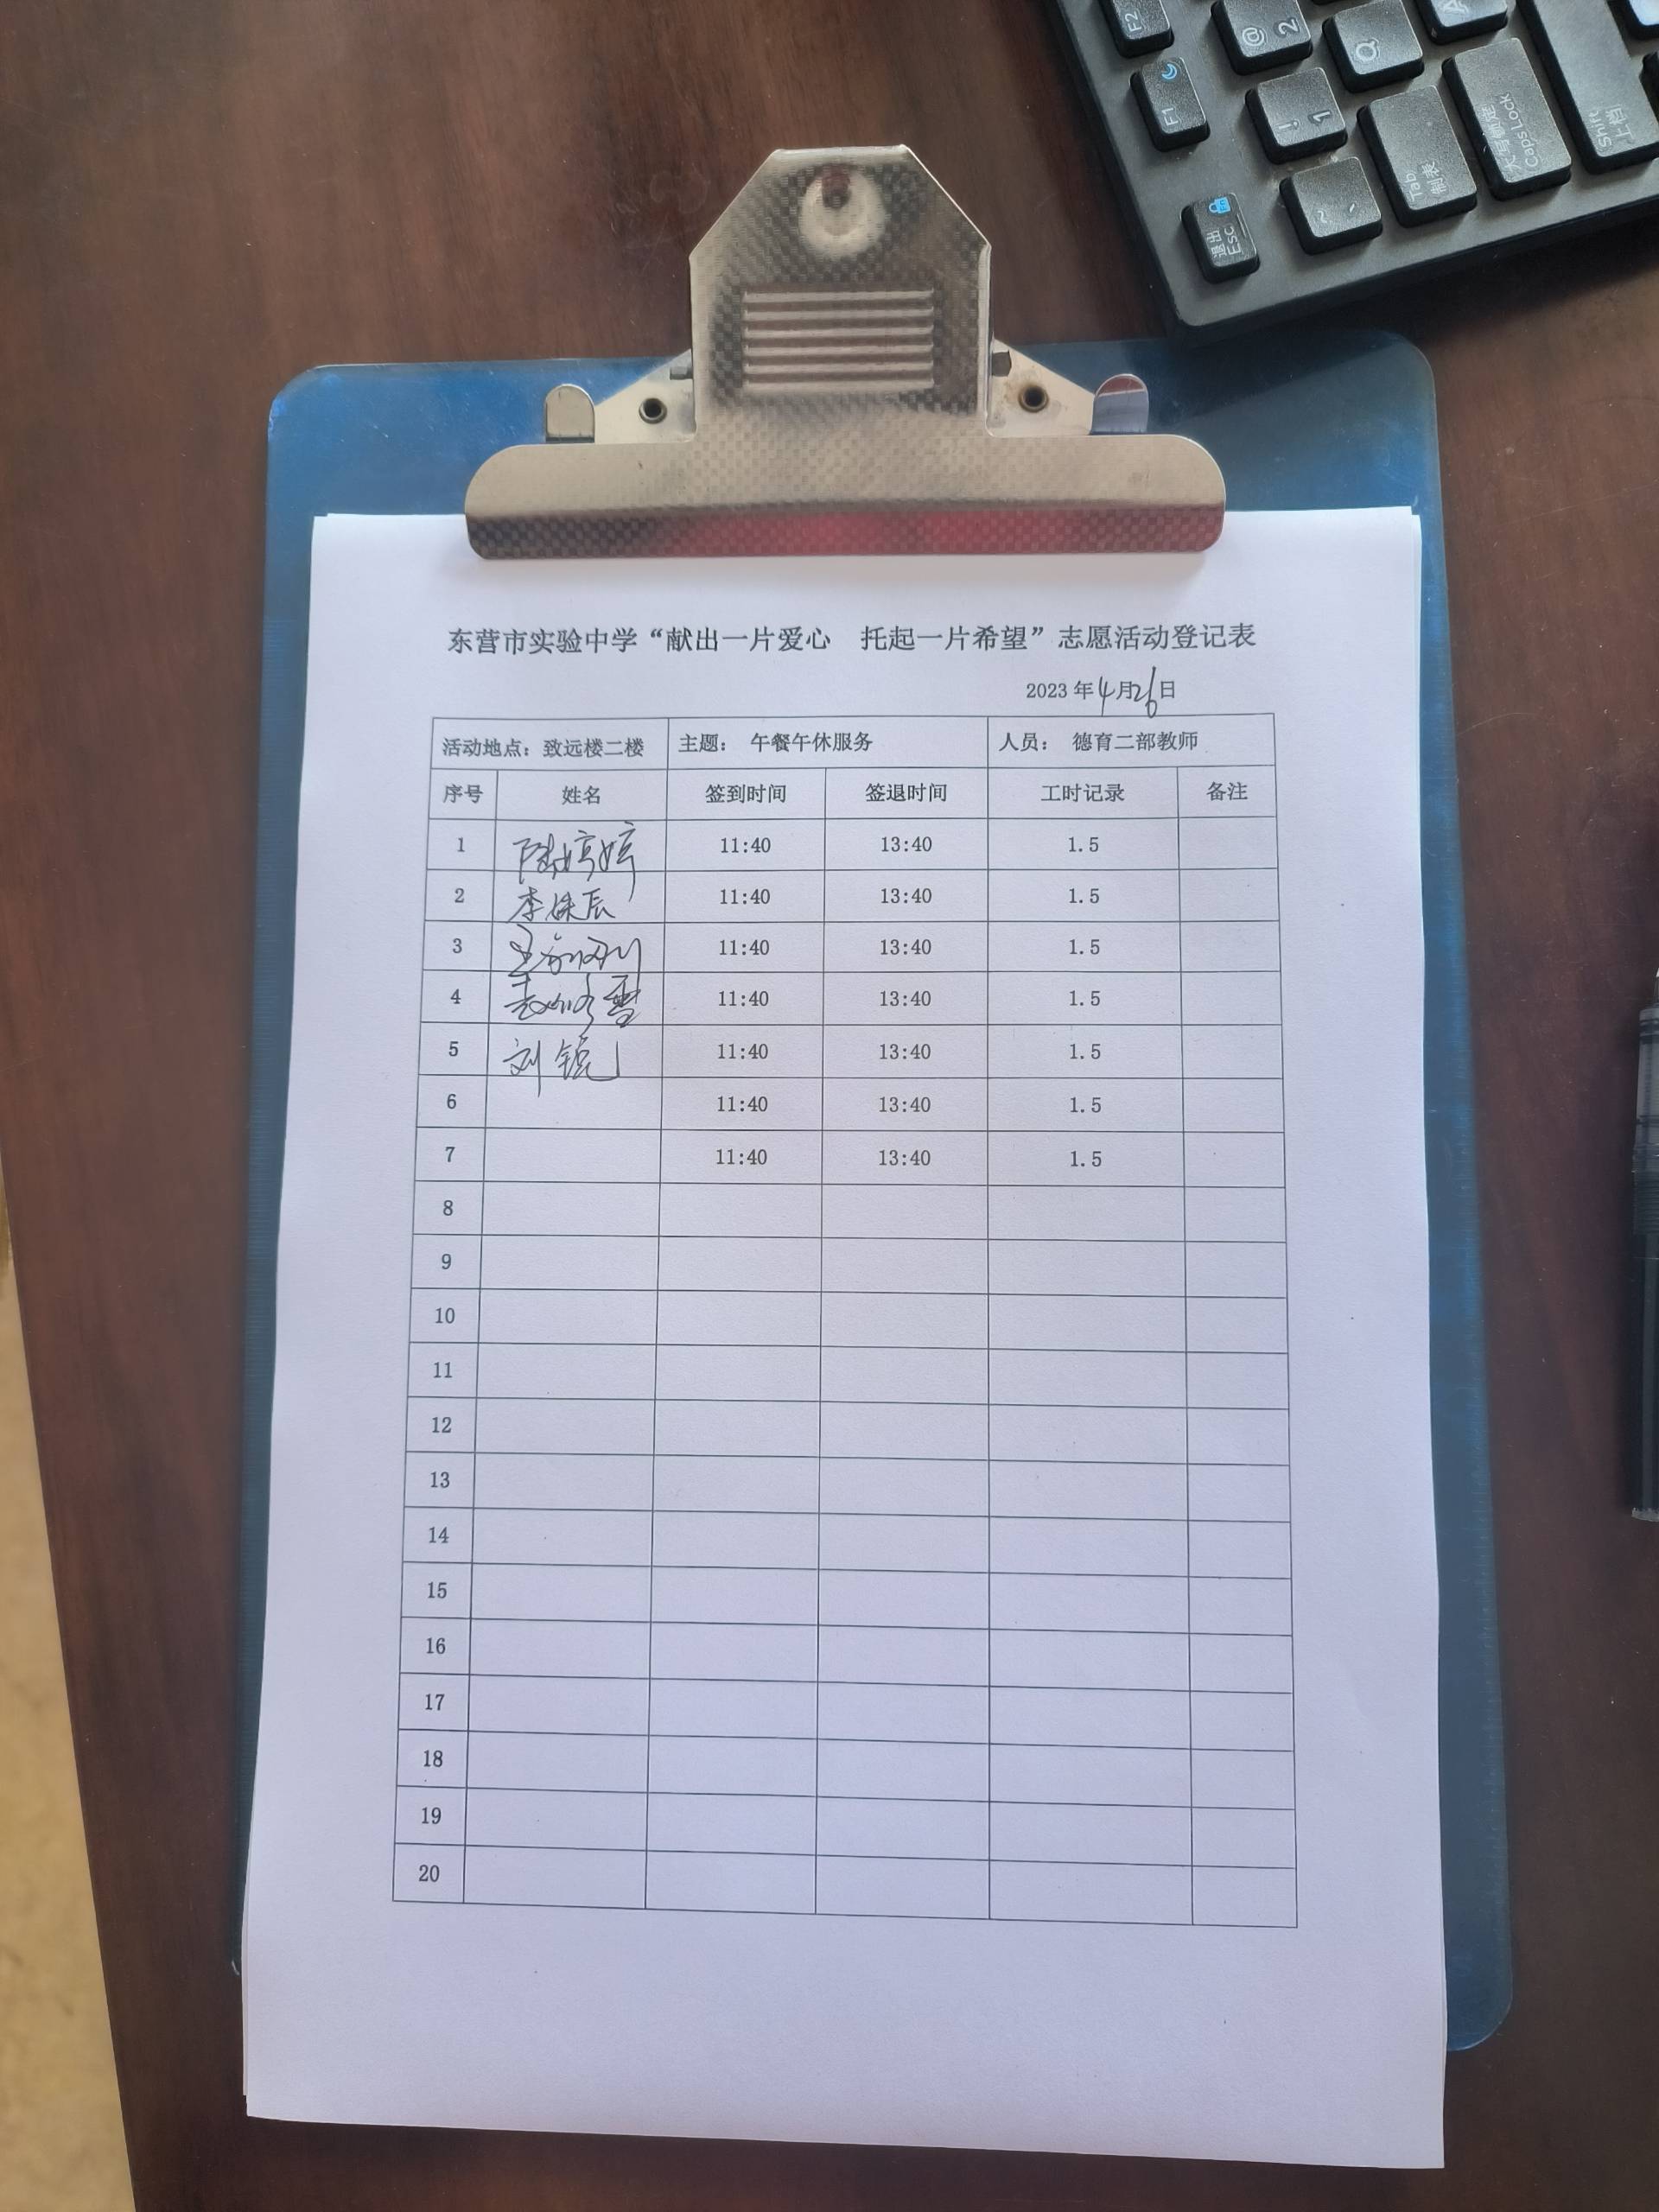 F2
@ 2
Q
A
F1
! 1
Tab 制表
大写锁定 CapsLock
Shift 上档
退出 Esc Fn
~ 、
东营市实验中学“献出一片爱心 托起一片希望”志愿活动登记表
2023 年 4 月 26 日
活动地点：致远楼二楼 主题： 午餐午休服务 人员： 德育二部教师
序号 姓名 签到时间 签退时间 工时记录 备注
1 陈婷婷 11:40 13:40 1.5
2 李姝辰 11:40 13:40 1.5
3 11:40 13:40 1.5
4 11:40 13:40 1.5
5 刘锐 11:40 13:40 1.5
6 11:40 13:40 1.5
7 11:40 13:40 1.5
8
9
10
11
12
13
14
15
16
17
18
19
20